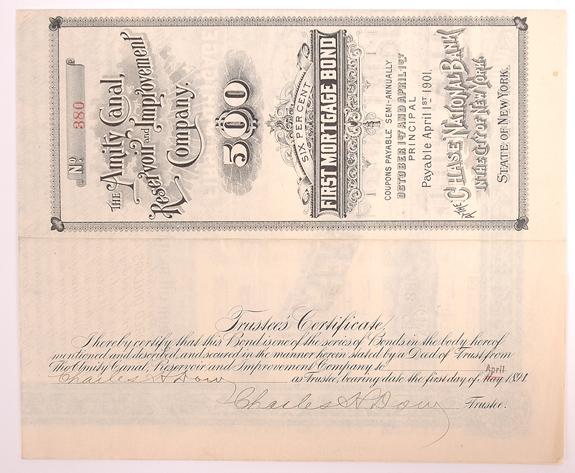 No 380
THE Amity Canal,
Reservoir and Improvement
Company.
500
SIX PER CENT
FIRST MORTGAGE BOND
COUPONS PAYABLE SEMI-ANNUALLY
OCTOBER 1ST AND APRIL 1ST
PRINCIPAL
Payable April 1ST 1901.
AT THE CHASE NATIONAL BANK
IN THE CITY OF NEW YORK.
STATE OF NEW YORK.
Trustee's Certificate.
I hereby certify that this Bond is one of the series of Bonds in the body hereof
mentioned and described, and secured in the manner herein stated by a Deed of Trust from
The Amity Canal, Reservoir and Improvement Company to
April
Charles H Dow as Trustee, bearing date the first day of May 1891
Charles H Dow Trustee.